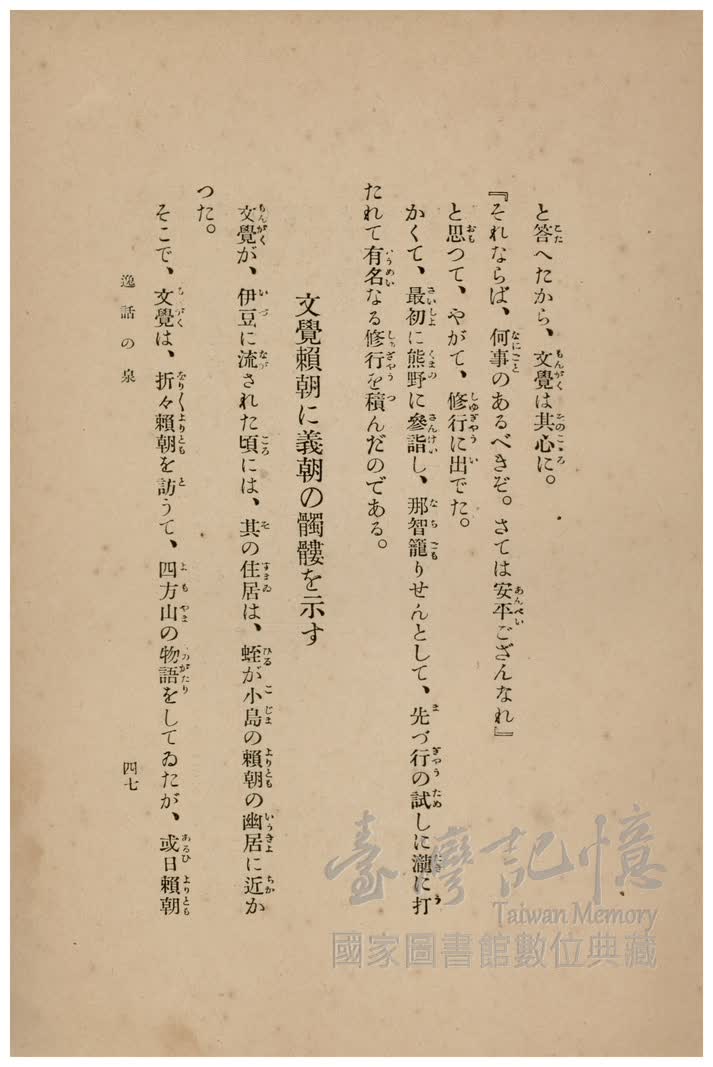 と答へたから、文覺は其心に。
『それならば、何事のあるべきぞ。さては安平ござんなれ』
と思つて、やがて、修行に出でた。
かくて、最初に熊野に參詣し、那智籠りせんとして、先づ行の試しに瀧に打
たれて有名なる修行を積んだのである。
文覺賴朝に義朝の髑髏を示す
文覺が、伊豆に流された頃には、其の住居は、蛭が小島の賴朝の幽居に近か
つた。
そこで、文覺は、折々賴朝を訪うて、四方山の物語をしてゐたが、或日賴朝
逸話の泉
四七
臺灣記憶
Taiwan Memory
國家圖書館數位典藏